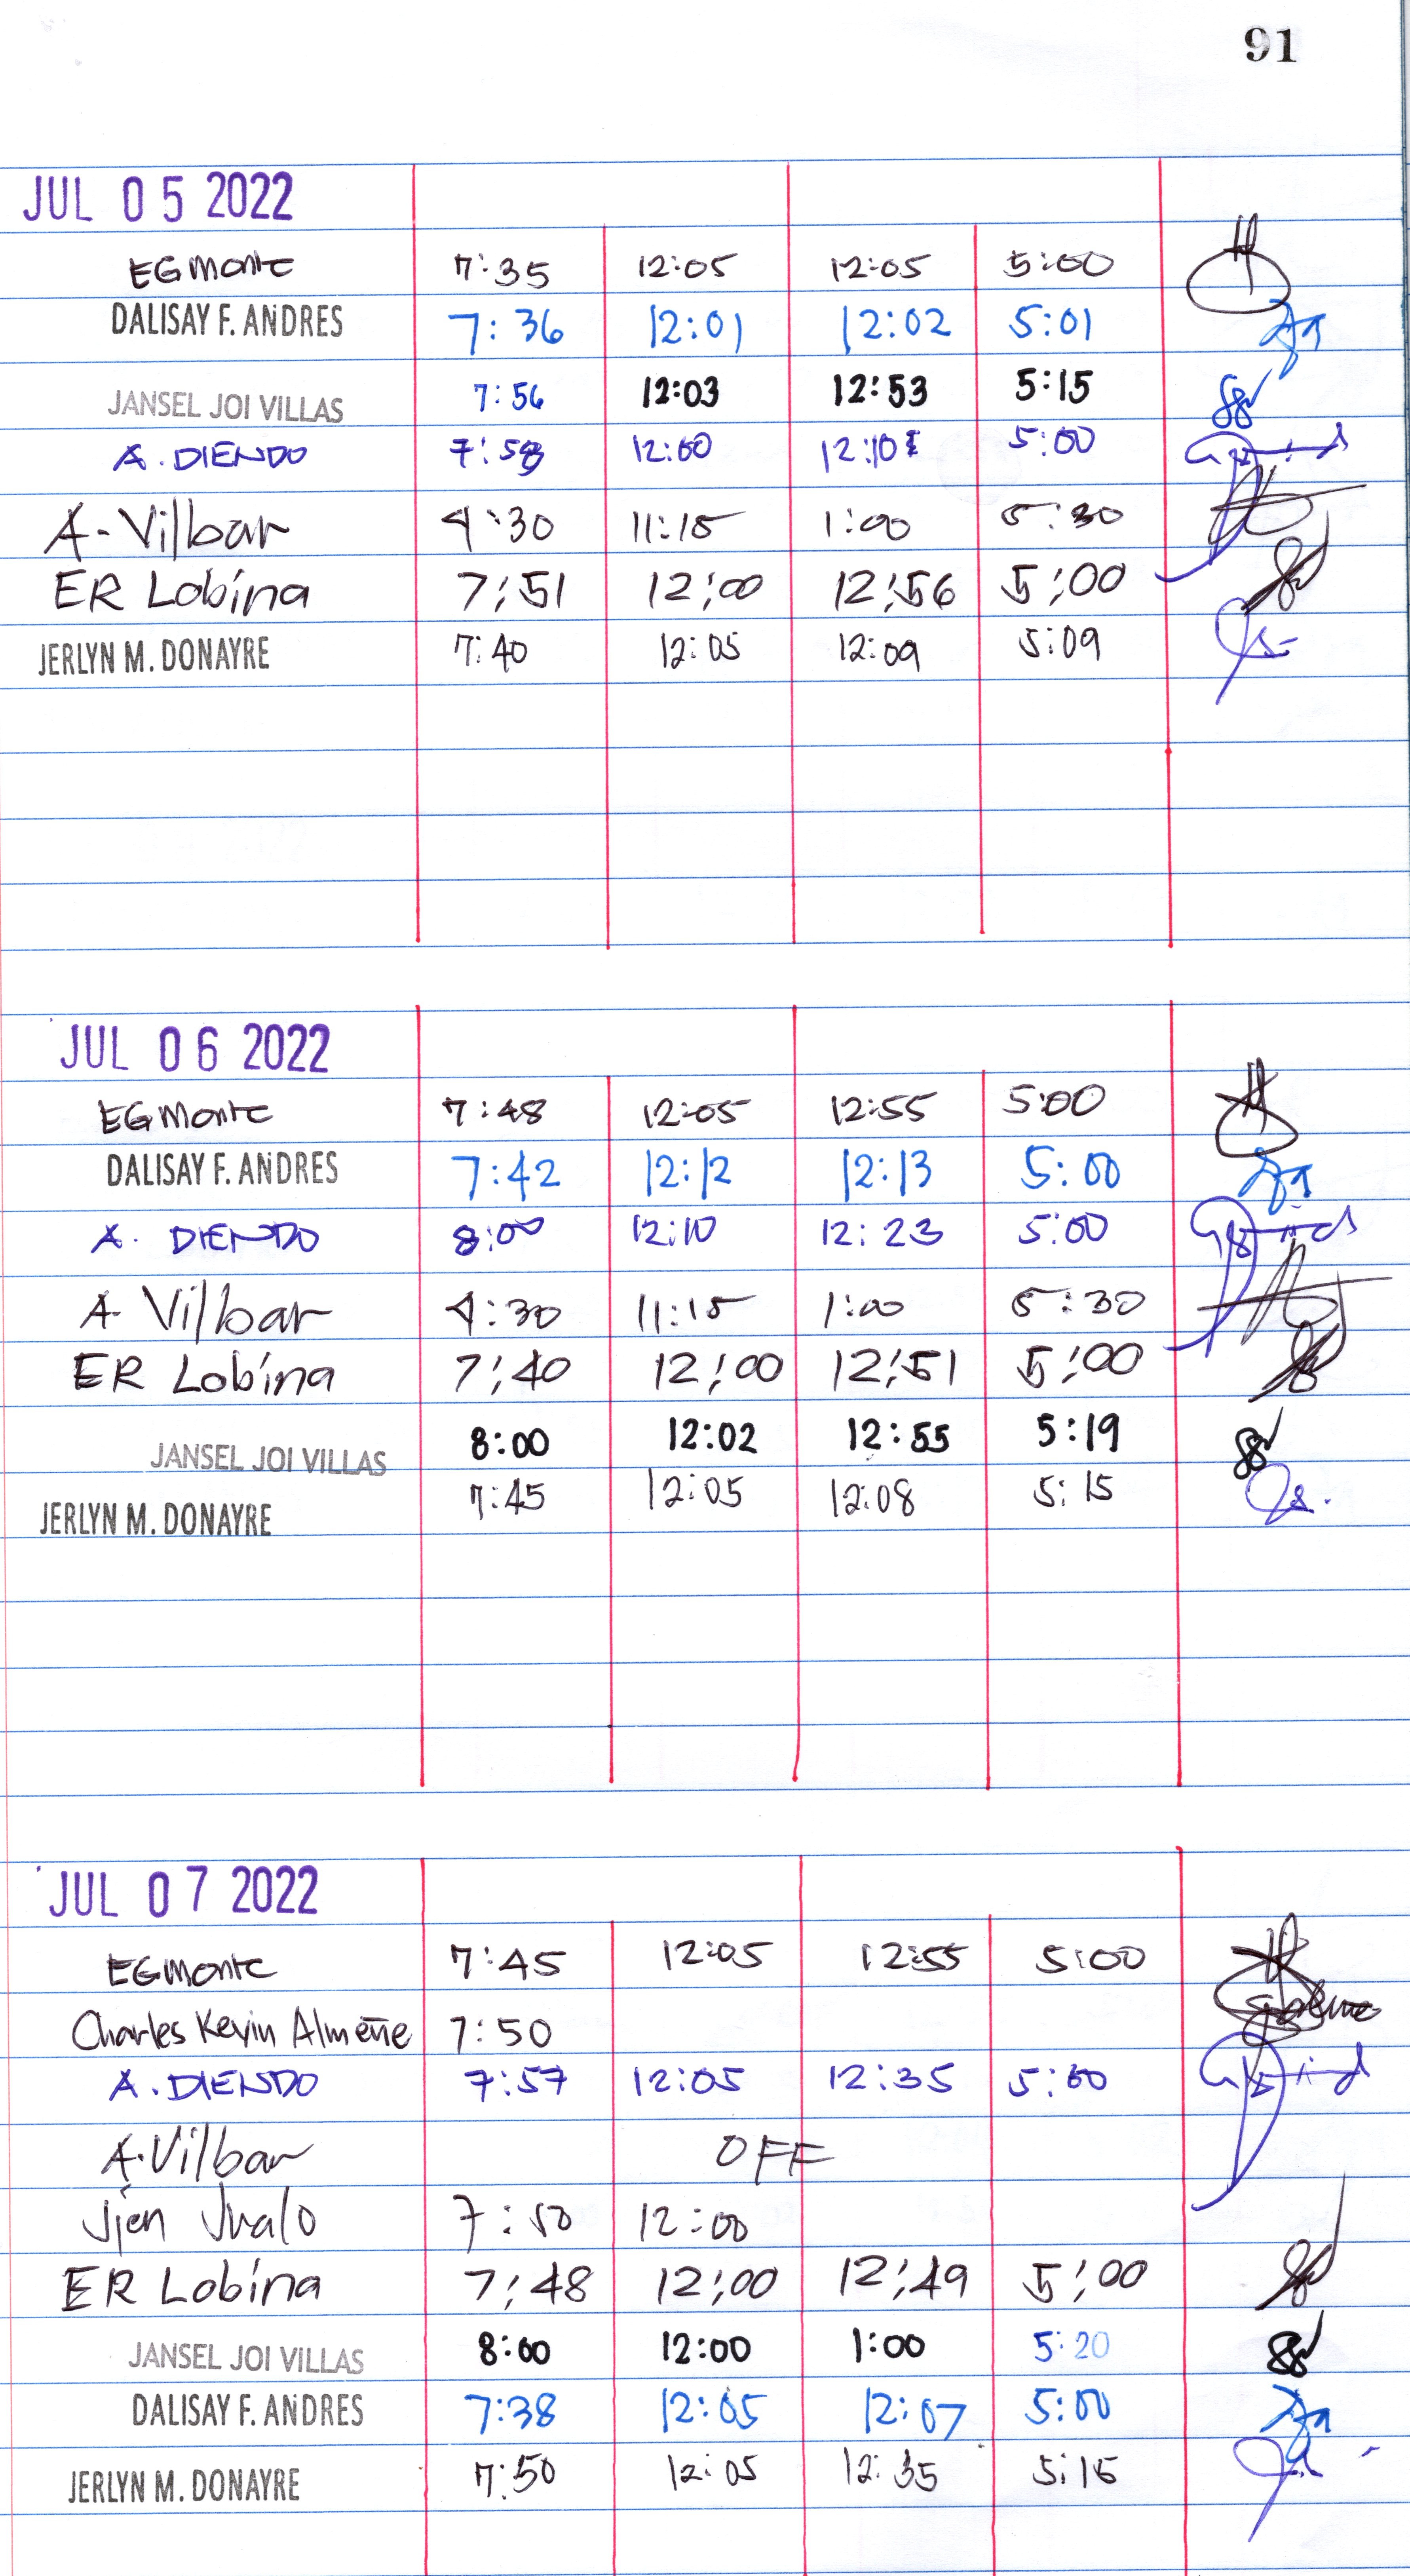 91
JUL 05 2022
EGMonte 7:35 12:05 12:05 5:00
DALISAY F. ANDRES 7:36 12:01 12:02 5:01
JANSEL JOI VILLAS 7:56 12:03 12:53 5:15
A. DIENDO 7:58 12:00 5:00
A. Vilbar 4:30 11:15 1:00 5:30
ER Lobina 7:51 12:00 12:56 5:00
JERLYN M. DONAYRE 7:40 12:05 12:09 5:09
JUL 06 2022
EGMonte 7:48 12:05 12:55 5:00
DALISAY F. ANDRES 7:42 12:12 12:13 5:00
A. DIENDO 8:00 12:10 12:23 5:00
A. Vilbar 4:30 11:15 1:00 5:30
ER Lobina 7:40 12:00 12:51 5:00
JANSEL JOI VILLAS 8:00 12:02 12:55 5:19
JERLYN M. DONAYRE 7:45 12:05 12:08 5:15
JUL 07 2022
EGMonte 7:45 12:05 12:55 5:00
Charles Kevin Almeñe 7:50
A. DIENDO 7:57 12:05 12:35 5:00
A. Vilbar OFF
Jien Jualo 7:50 12:00
ER Lobina 7:48 12:00 12:49 5:00
JANSEL JOI VILLAS 8:00 12:00 1:00 5:20
DALISAY F. ANDRES 7:38 12:05 12:07 5:00
JERLYN M. DONAYRE 7:50 12:05 12:35 5:15